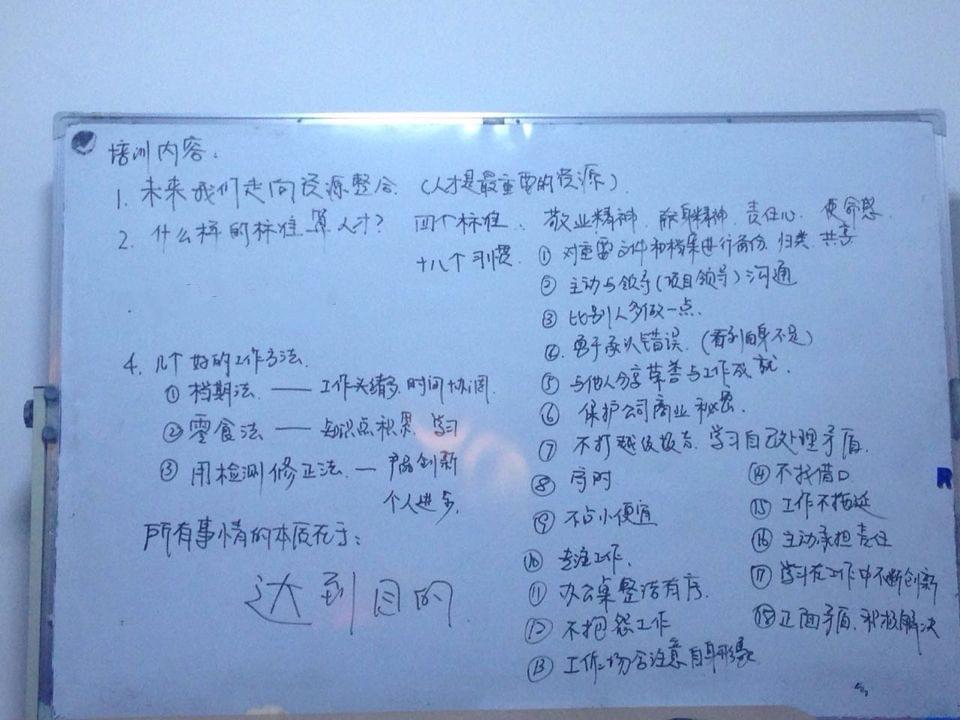 培训内容:
1. 未来我们走向资源整合 (人才是最重要的资源).
2. 什么样的标准算人才? 四个标准: 敬业精神. 献身精神. 责任心. 使命感.
十八个习惯.
① 对重要文件和档案进行备份. 归类. 共享
② 主动与领导(项目领导)沟通
③ 比别人多做一点.
④. 勇于承认错误. (看到自身不足)
⑤ 与他人分享荣誉与工作成就.
⑥ 保护公司商业秘密.
⑦ 不打越级报告. 学习自己处理矛盾.
⑧ 守时
⑨ 不占小便宜
⑩ 专注工作.
⑪ 办公桌整洁有序.
⑫ 不抱怨工作
⑬ 工作场合注意自身形象
⑭ 不找借口
⑮ 工作不拖延
⑯ 主动承担责任
⑰ 学习在工作中不断创新
⑱ 正面矛盾. 积极解决
4. 几个好的工作方法.
① 档期法 —— 工作头绪多. 时间协调.
② 零食法 —— 知识点积累. 学习
③ 用检测修正法. — 产品创新
个人进步.
所有事情的本质在于:
达到目的